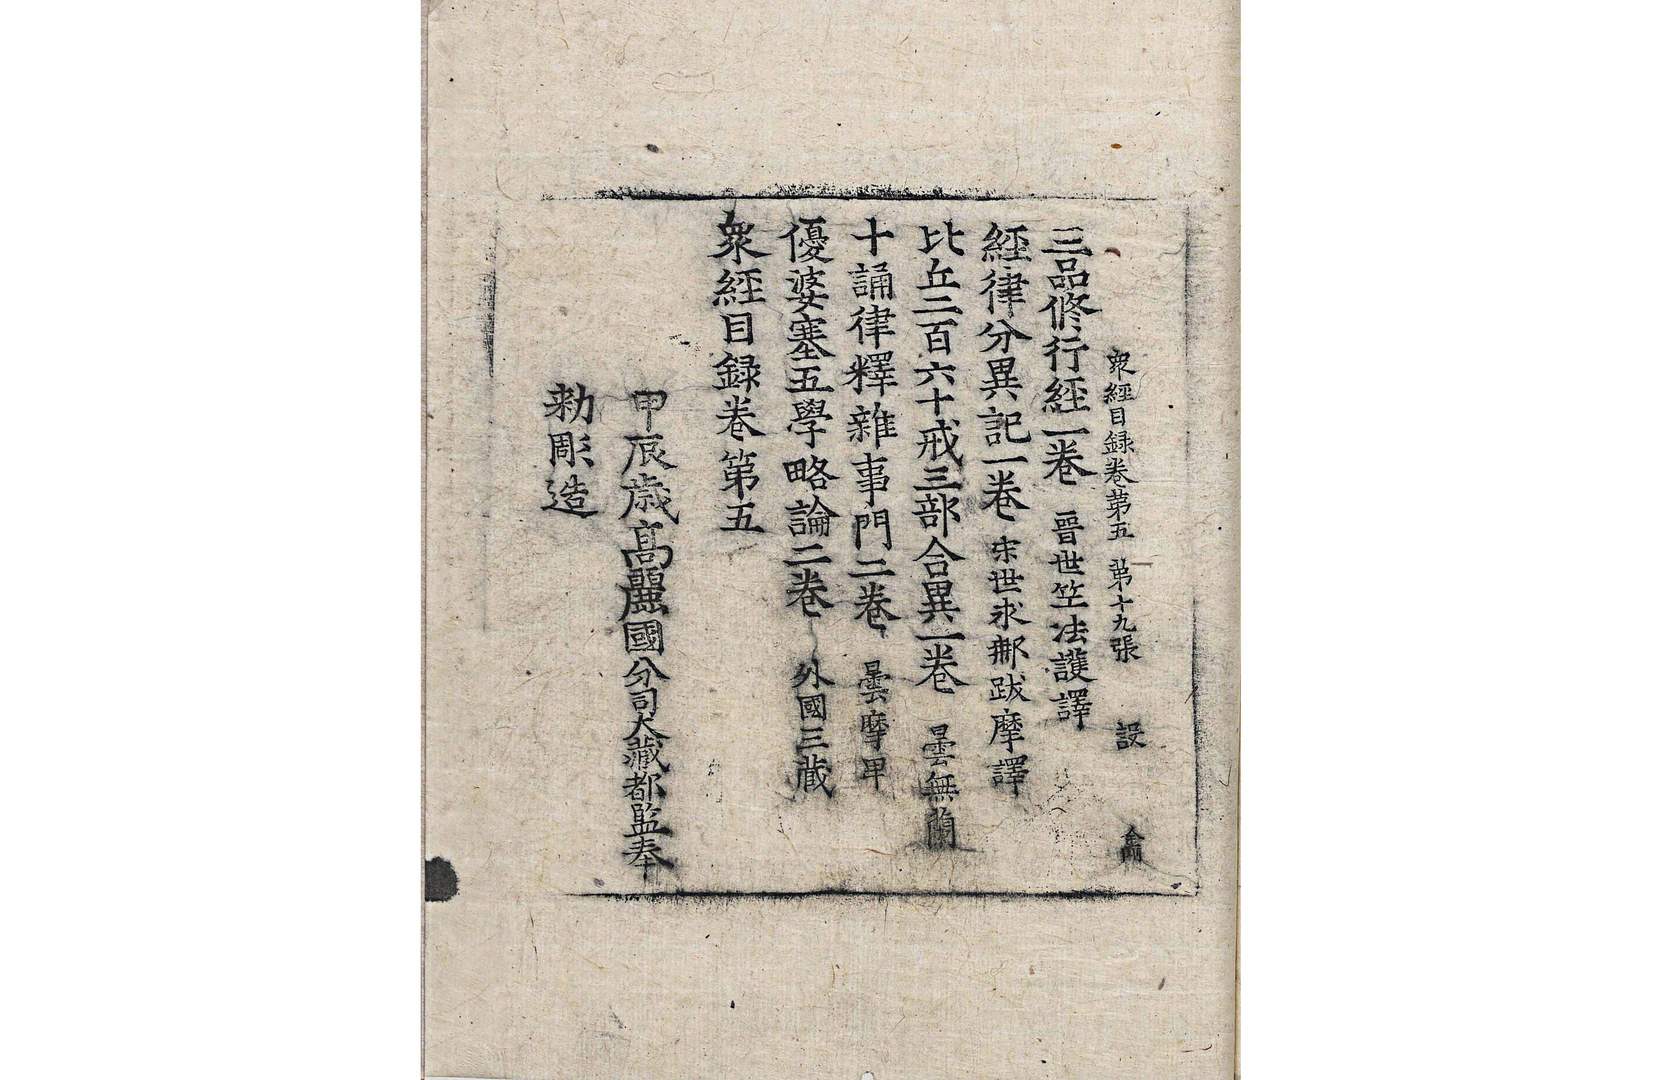 衆經目録卷第五 第十九張 設
三品修行經一卷 晉世竺法護譯
經律分異記一卷 宋世求𨚗跋摩譯
比丘二百六十戒三部合異一卷 曇無蘭
十誦律釋雜事門二卷 曇摩卑
優婆塞五學略論二卷 外國三藏
衆經目録卷第五
甲辰歳高麗國分司大藏都監奉
勑彫造